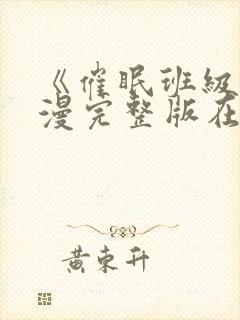 《催眠班級
漫完整版在
黄東升